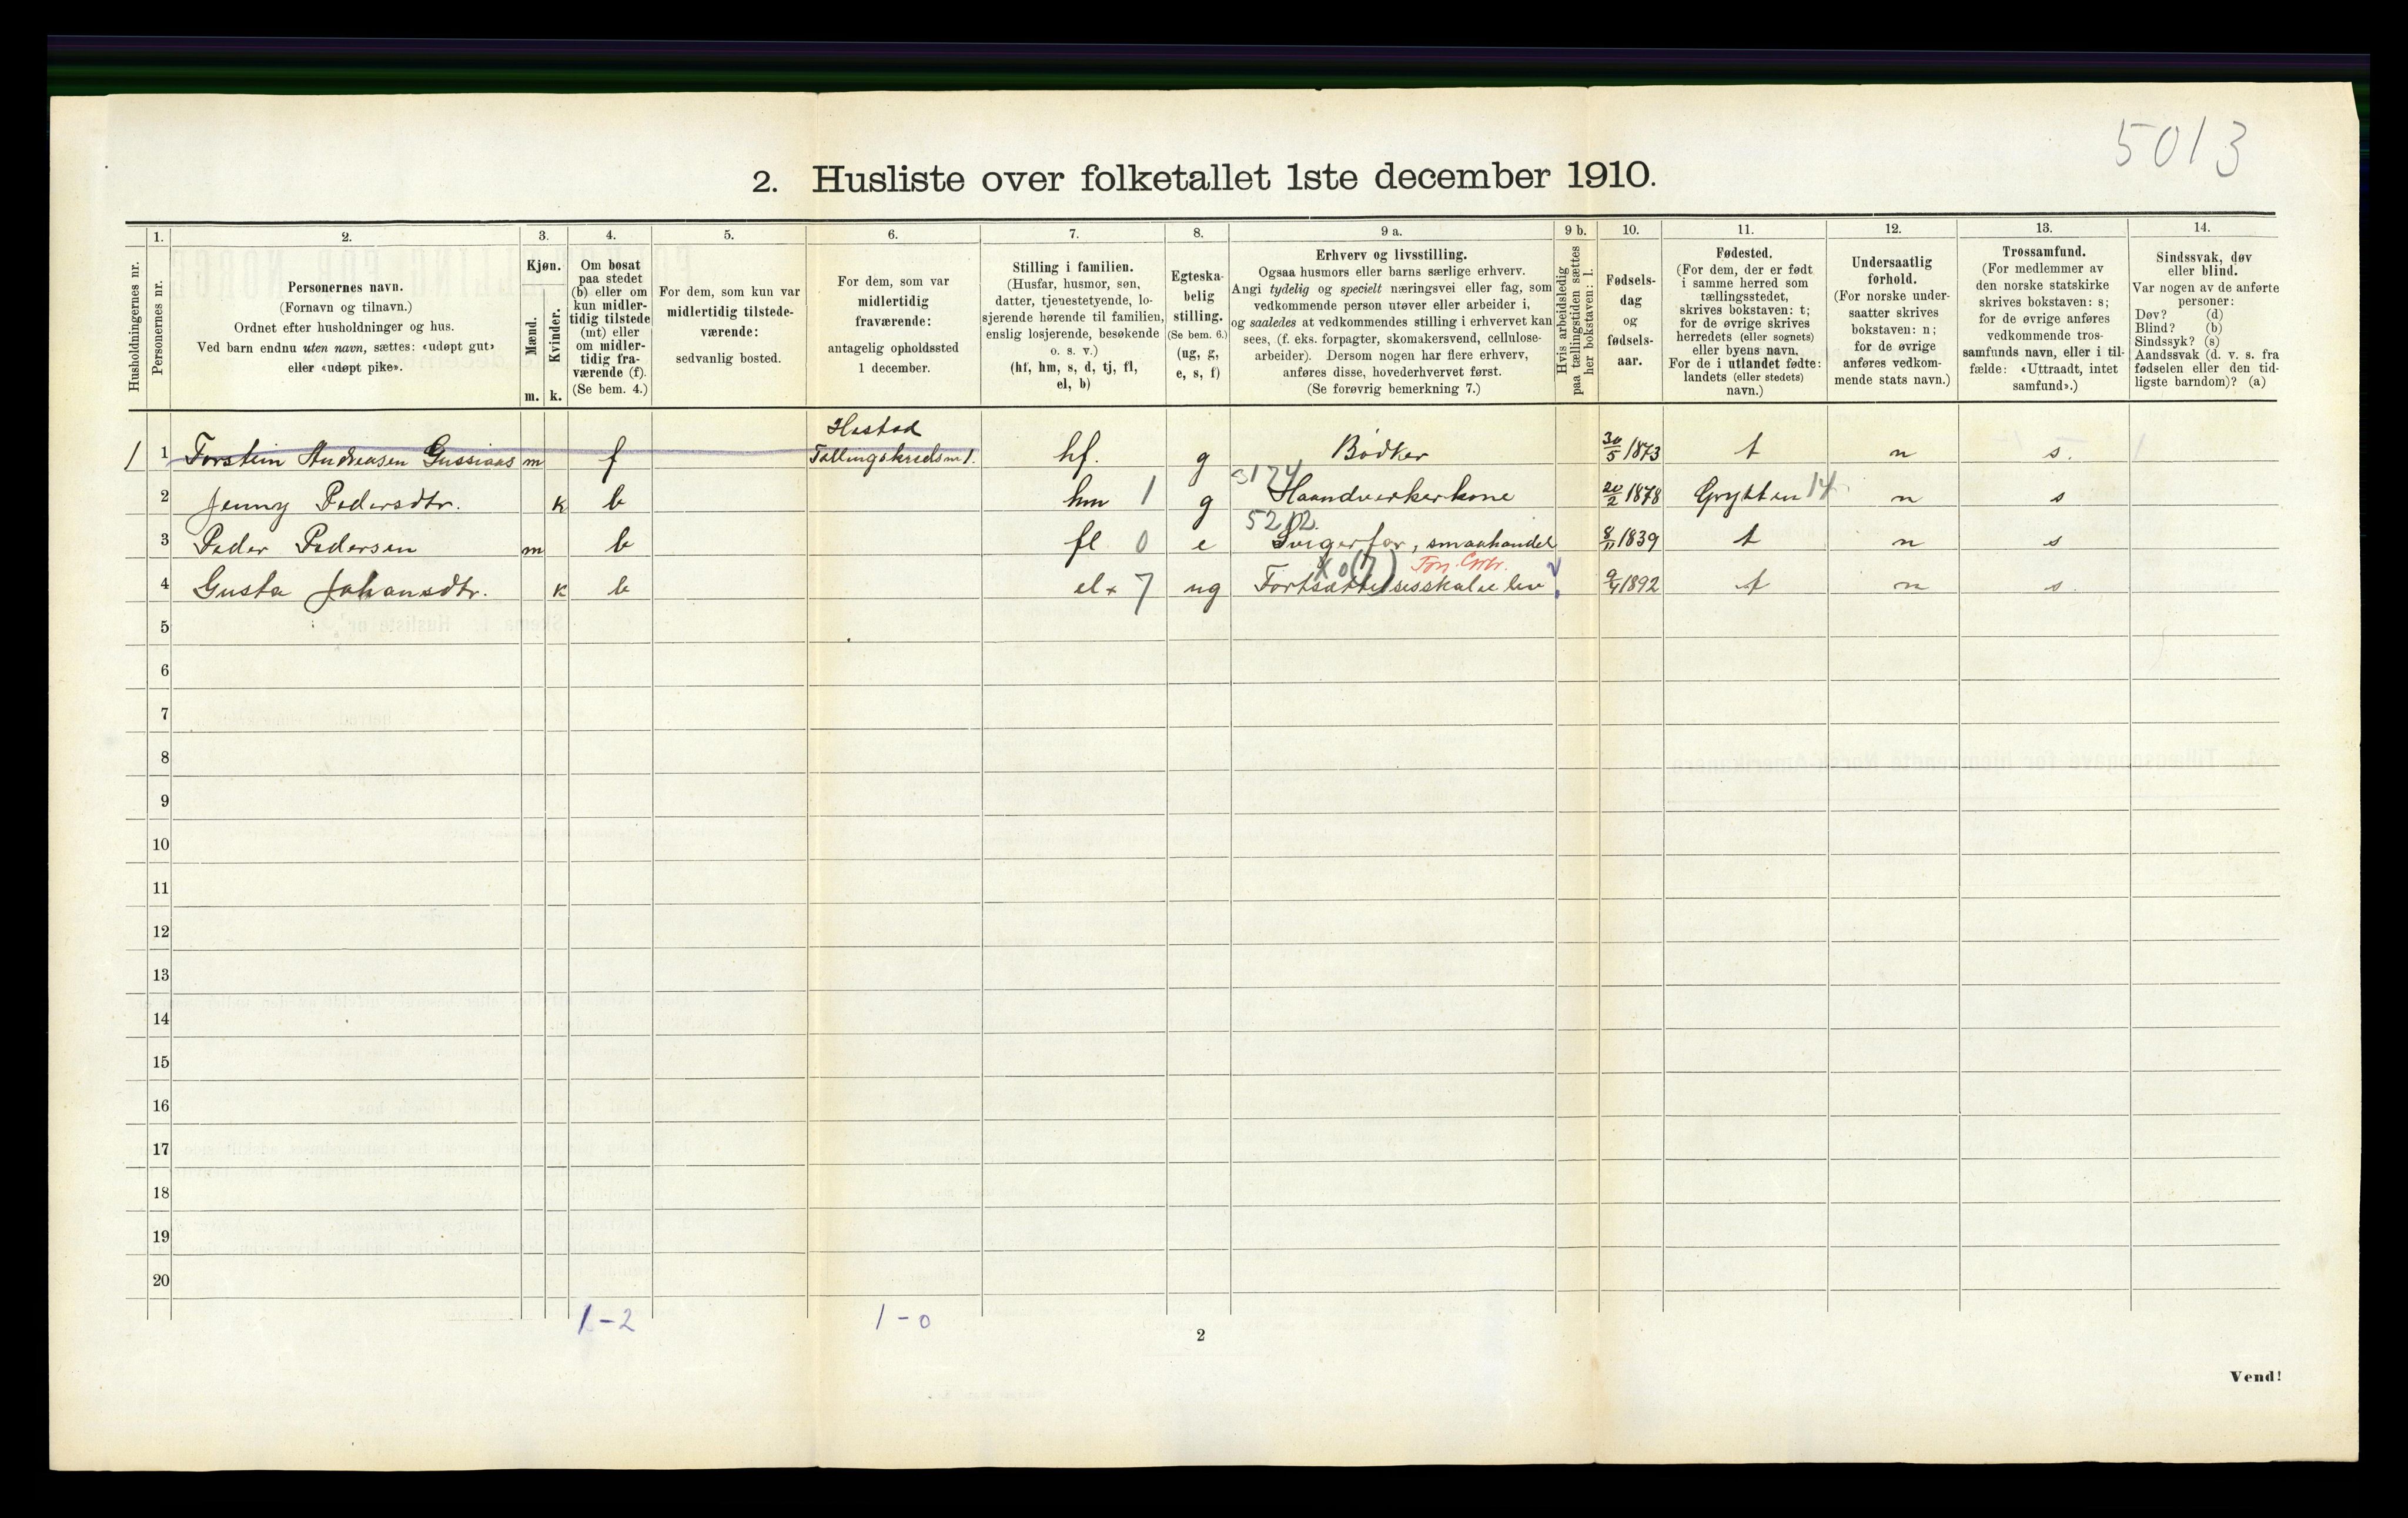 5013
2. Husliste over folketallet 1ste december 1910.
Husholdningernes nr.
1.
Personernes nr.
2.
Personernes navn.
(Fornavn og tilnavn.)
Ordnet efter husholdninger og hus.
Ved barn endnu uten navn, sættes: «udøpt gut»
eller «udøpt pike».
3.
Kjøn.
Mænd.
m.
Kvinder.
k.
4.
Om bosat
paa stedet
(b) eller om
kun midler-
tidig tilstede
(mt) eller
om midler-
tidig fra-
værende (f).
(Se bem. 4.)
5.
For dem, som kun var
midlertidig tilstede-
værende:
sedvanlig bosted.
6.
For dem, som var
midlertidig
fraværende:
antagelig opholdssted
1 december.
7.
Stilling i familien.
(Husfar, husmor, søn,
datter, tjenestetyende, lo-
sjerende hørende til familien,
enslig losjerende, besøkende
o. s. v.)
(hf, hm, s, d, tj, fl,
el, b)
8.
Egteska-
belig
stilling.
(Se bem. 6.)
(ug, g,
e, s, f)
9 a.
Erhverv og livsstilling.
Ogsaa husmors eller barns særlige erhverv.
Angi tydelig og specielt næringsvei eller fag, som
vedkommende person utøver eller arbeider i,
og saaledes at vedkommendes stilling i erhvervet kan
sees, (f. eks. forpagter, skomakersvend, cellulose-
arbeider). Dersom nogen har flere erhverv,
anføres disse, hovederhvervet først.
(Se forøvrig bemerkning 7.)
9 b.
Hvis arbeidsledig
paa tællingstiden sættes
her bokstaven: l.
10.
Fødsels-
dag
og
fødsels-
aar.
11.
Fødested.
(For dem, der er født
i samme herred som
tællingsstedet,
skrives bokstaven: t;
for de øvrige skrives
herredets (eller sognets)
eller byens navn.
For de i utlandet fødte:
landets (eller stedets)
navn.)
12.
Undersaatlig
forhold.
(For norske under-
saatter skrives
bokstaven: n;
for de øvrige
anføres vedkom-
mende stats navn.)
13.
Trossamfund.
(For medlemmer av
den norske statskirke
skrives bokstaven: s;
for de øvrige anføres
vedkommende tros-
samfunds navn, eller i til-
fælde: «Uttraadt, intet
samfund».)
14.
Sindssvak, døv
eller blind.
Var nogen av de anførte
personer:
Døv? (d)
Blind? (b)
Sindssyk? (s)
Aandssvak (d. v. s. fra
fødselen eller den tid-
ligste barndom)? (a)
Hestad
1 1 Torstein Andreasen Gussiaas m f Tællingskreds nr 1. hf. g Bødker 30/5 1873 t n s.
5174
2 Jenny Pedersdtr. k b hm 1 g Haandverkerkone 20/2 1878 Grytten 14 n s
52 12
3 Peder Pedersen m b fl 0 e Svigerfar, smaahandel 8/11 1839 t n s
X 0 (7)
4 Gusta Johansdtr. k b el x 7 ug Fortsættelsesskoleelev 9/4 1892 t n s.
5
6
7
8
9
10
11
12
13
14
15
16
17
18
19
20
1-2 1-0
2
Vend!